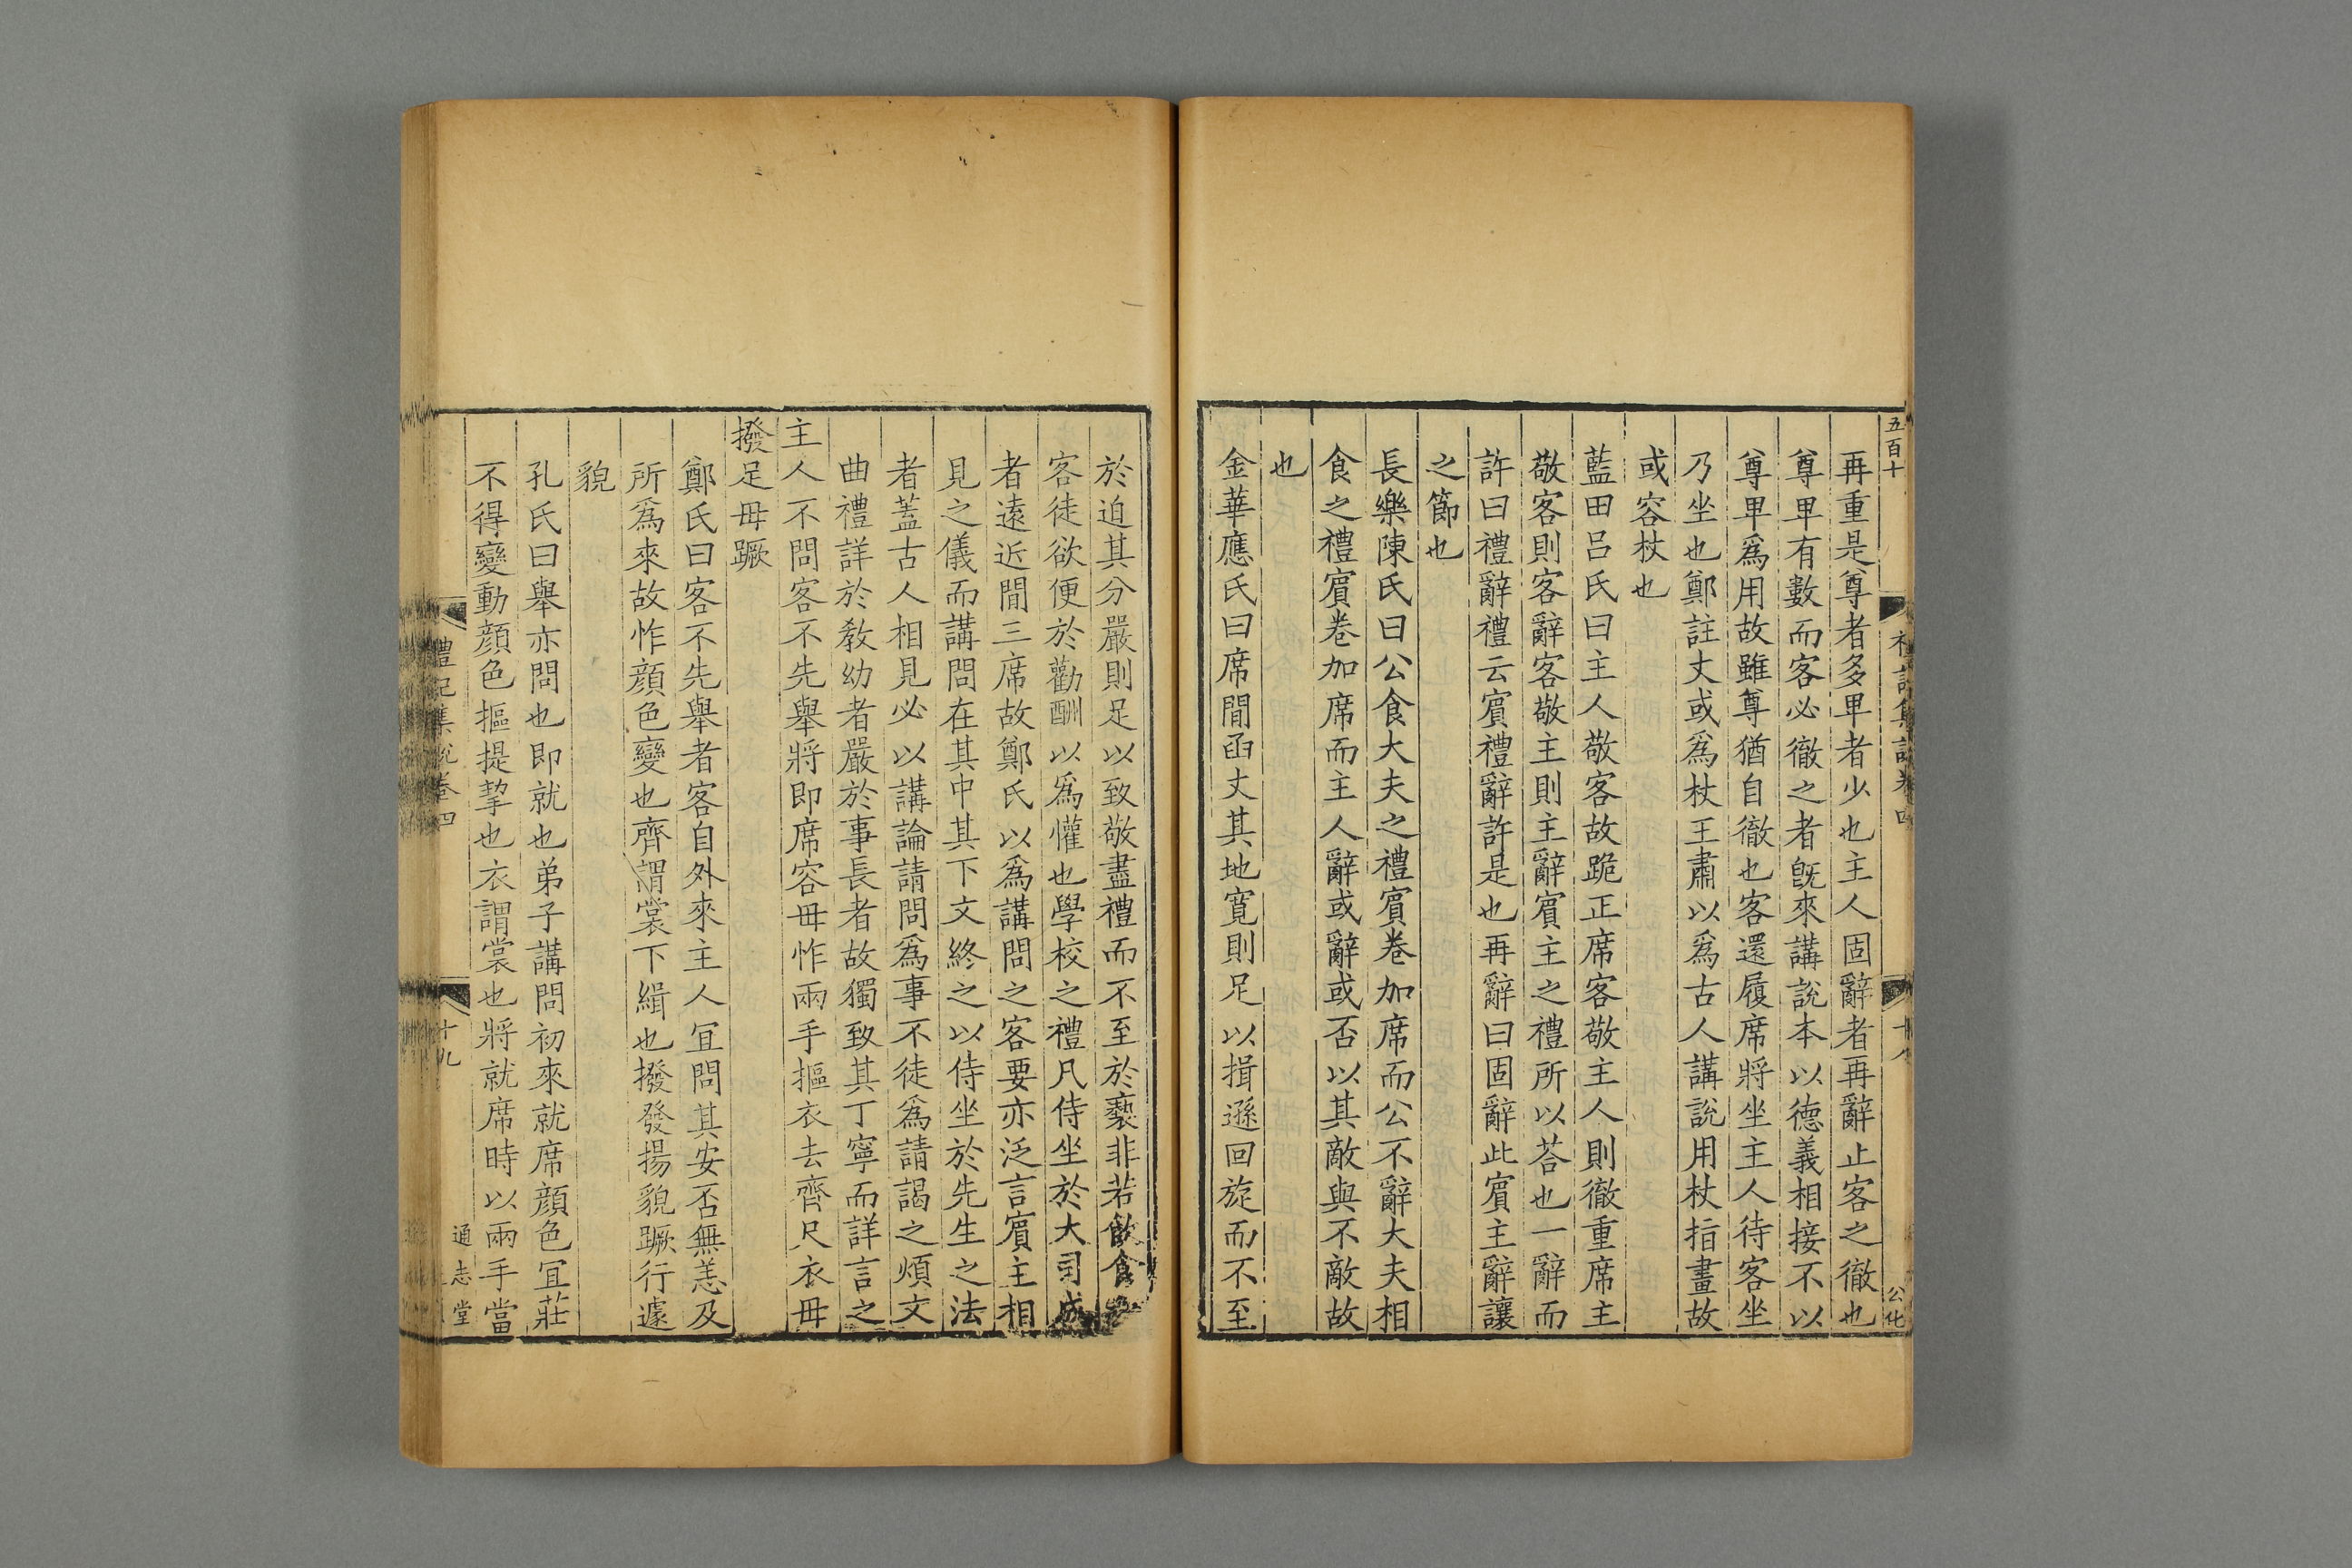 五百十
禮記集說卷四
十八
公化
再重是尊者多卑者少也主人固辭者再辭止客之徹也
尊卑有數而客必徹之者旣來講說本以德義相接不以
尊卑爲用故雖尊猶自徹也客還履席將坐主人待客坐
乃坐也鄭註丈或爲杖王肅以爲古人講說用杖指畫故
或容杖也
藍田呂氏曰主人敬客故跪正席客敬主人則徹重席主
敬客則客辭客敬主則主辭賓主之禮所以荅也一辭而
許曰禮辭禮云賓禮辭許是也再辭曰固辭此賓主辭讓
之節也
長樂陳氏曰公食大夫之禮賓卷加席而公不辭大夫相
食之禮賓卷加席而主人辭或辭或否以其敵與不敵故
也
金華應氏曰席間函丈其地寬則足以揖遜回旋而不至
於迫其分嚴則足以致敬盡禮而不至於褻非若飲食
客徒欲便於勸酬以爲懽也學校之禮凡侍坐於大司成
者遠近間三席故鄭氏以爲講問之客要亦泛言賓主相
見之儀而講問在其中其下文終之以侍坐於先生之法
者蓋古人相見必以講論請問爲事不徒爲請謁之煩文
曲禮詳於敎幼者嚴於事長者故獨致其丁寧而詳言之
主人不問客不先舉將即席容毋怍兩手摳衣去齊尺衣毋
撥足毋蹶
鄭氏曰客不先舉者客自外來主人宜問其安否無恙及
所爲來故怍顏色變也齊謂裳下緝也撥發揚貌蹶行遽
貌
孔氏曰舉亦問也即就也弟子講問初來就席顏色宜莊
不得變動顏色摳提挈也衣謂裳也將就席時以兩手當
禮記集說卷四
十九
通志堂